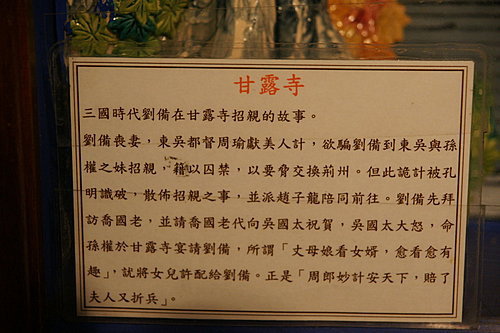 甘露寺
三國時代劉備在甘露寺招親的故事。
劉備喪妻，東吳都督周瑜獻美人計，欲騙劉備到東吳與孫
權之妹招親，藉以囚禁，以要脅交換荊州。但此詭計被孔
明識破，散佈招親之事，並派趙子龍陪同前往。劉備先拜
訪喬國老，並請喬國老代向吳國太祝賀，吳國太大怒，命
孫權於甘露寺宴請劉備，所謂「丈母娘看女婿，愈看愈有
趣」，就將女兒許配給劉備。正是「周郎妙計安天下，賠了
夫人又折兵」。